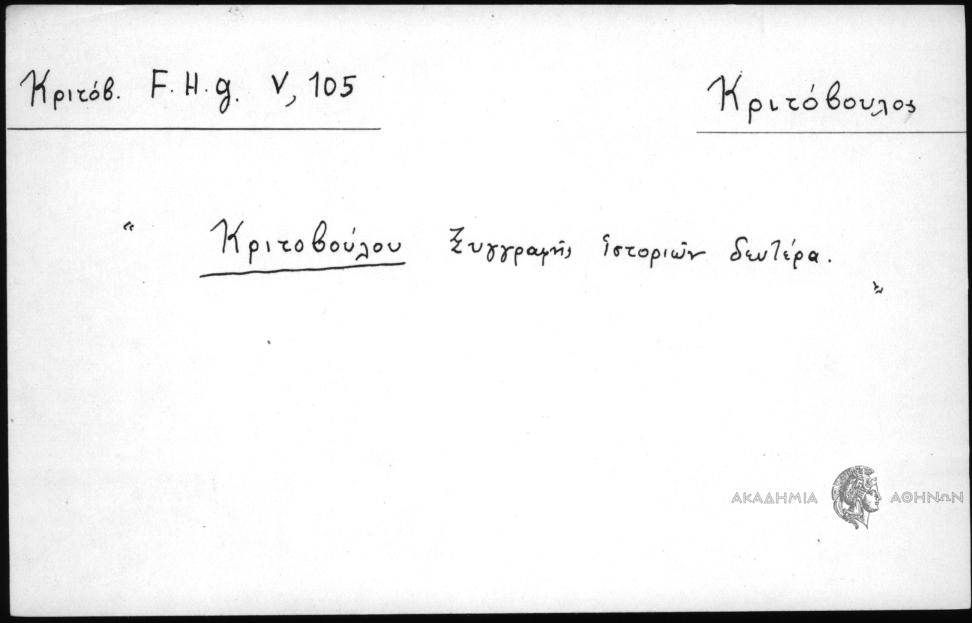 Κριτόβ. F. H. g. V, 105
Κριτόβουλος
“ Κριτοβούλου Ξυγγραφῆς ἱστοριῶν δευτέρα. „
ΑΚΑΔΗΜΙΑ ΑΘΗΝΩΝ